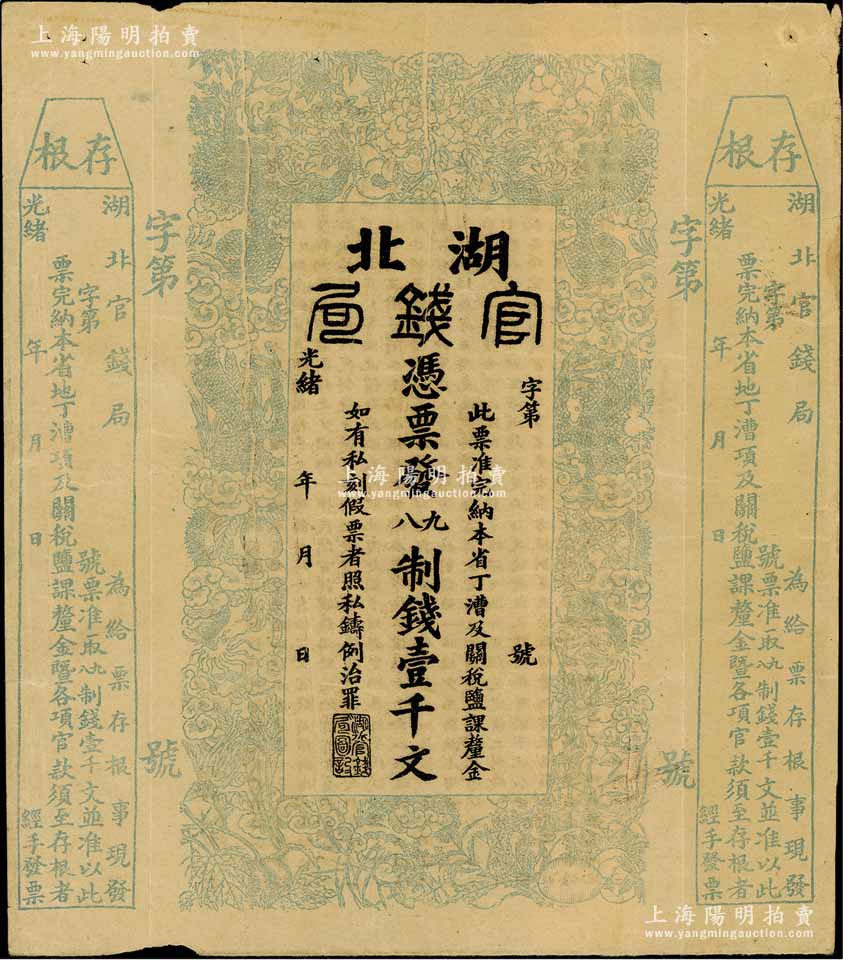 上海陽明拍賣
www.yangmingauction.com
上海陽明拍賣
www.yangmingauction.com
存根
湖北官錢局 為給票存根事現發
字第 號票准取八九制錢壹千文並准以此
票完納本省地丁漕項及關稅鹽課釐金暨各項官款須至存根者
光緒 年 月 日 經手發票
字第 號
湖北
官錢局
字第 號
此票准完納本省丁漕及關稅鹽課釐金
憑票發九八制錢壹千文
如有私刻假票者照私鑄例治罪
光緒 年 月 日
湖北官錢局圖記
上海陽明拍賣
www.yangmingauction.com
字第 號
存根
湖北官錢局 為給票存根事現發
字第 號票准取八九制錢壹千文並准以此
票完納本省地丁漕項及關稅鹽課釐金暨各項官款須至存根者
光緒 年 月 日 經手發票
上海陽明拍賣
www.yangmingauction.com